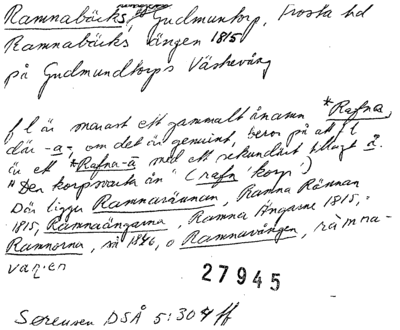 Ramnabäcks, Gudmuntorp, Frosta hd
Ramnabäcks ängen 1815
på Gudmundtorps Västevång
f l är snarast ett gammalt ånamn *Rafna,
där -a-, om det är genuint, beror på att fl
är ett *Rafn-ā med ett sekundärt tillagt å.
"Den korpsvarta ån" (rafn 'korp')
Där ligger Ramnarännan, Ramna Rännan
1815, Ramnaängarna, Ramna Ängarne 1815,
Ramnorna, 1846, o Ramnavången, rämna-
vaŋ·en
27945
Sørensen DSÅ 5:304 ff